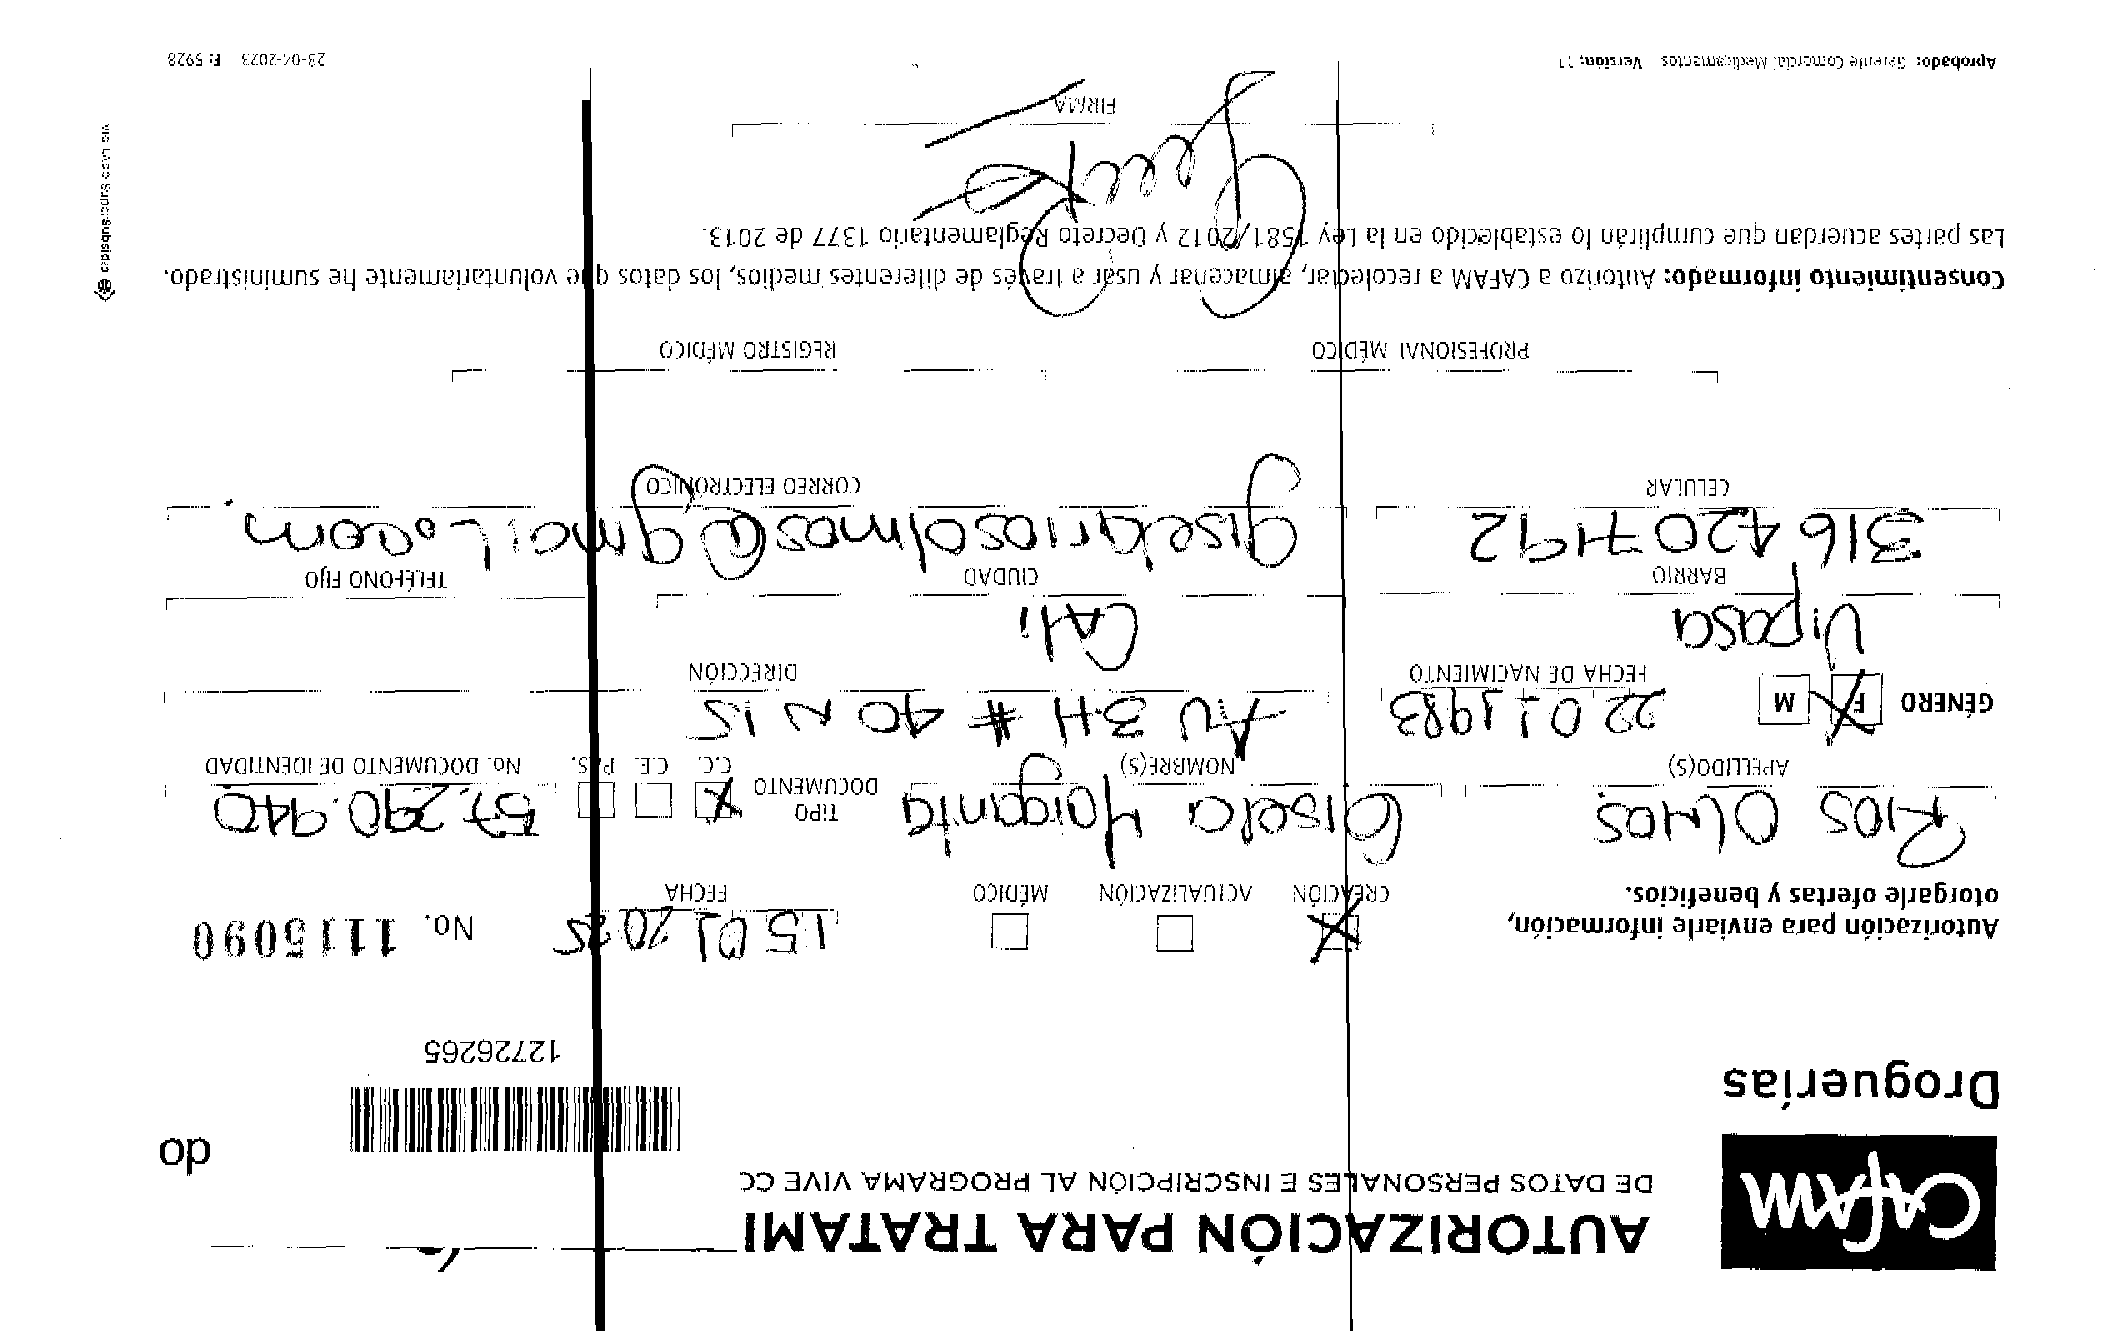 CAFAM
Droguerías
AUTORIZACIÓN PARA TRATAMI
DE DATOS PERSONALES E INSCRIPCIÓN AL PROGRAMA VIVE CC
do
12726265
Autorización para enviarle información,
otorgarle ofertas y beneficios.
X CREACIÓN ACTUALIZACIÓN MÉDICO 15 01 2025 FECHA No. 1115090
RIOS OLMOS Gisela Yorganta X 57.290.940
APELLIDO(S) NOMBRE(S) TIPO DOCUMENTO C.C. C.E. P.A.S. No. DOCUMENTO DE IDENTIDAD
GÉNERO F X M 22 01 1983 AV 3H # 40 N 15
FECHA DE NACIMIENTO DIRECCIÓN
Vipasa CALi
BARRIO CIUDAD TELÉFONO FIJO
316 420 7192 giselariosolmos@gmail.com.
CELULAR CORREO ELECTRÓNICO
PROFESIONAL MÉDICO REGISTRO MÉDICO
Consentimiento informado: Autorizo a CAFAM a recolectar, almacenar y usar a través de diferentes medios, los datos que voluntariamente he suministrado.
Las partes acuerdan que cumplirán lo establecido en la Ley 1581/2012 y Decreto Reglamentario 1377 de 2013.
FIRMA
Aprobado: Gerente Comercial Medicamentos Versión: 11 28-04-2023 F: 5928